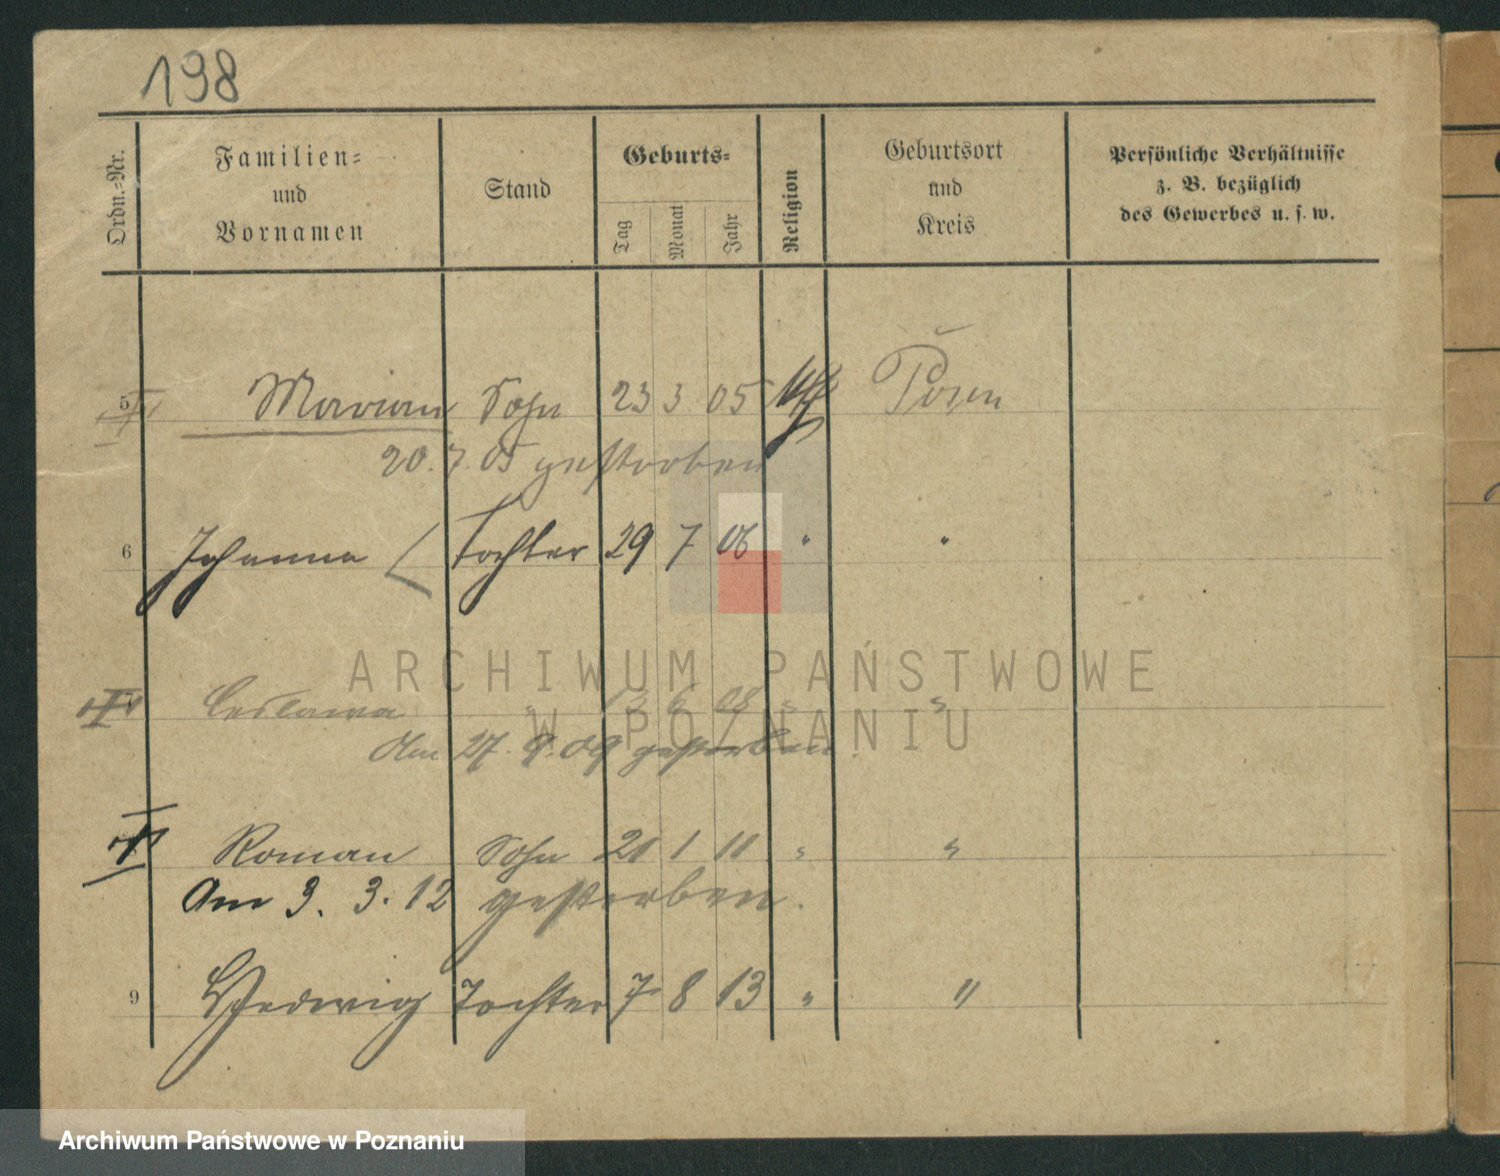 198
Ordn.-Nr. Familien- und Vornamen Stand Geburts- Tag Monat Jahr Religion Geburtsort und Kreis Persönliche Verhältnisse z. B. bezüglich des Gewerbes u. s. w.
5 Marian Sohn 23 3 05 Posen
20. 7. 05 gestorben
6 Johanna Tochter 29 7 06 " "
ARCHIWUM PAŃSTWOWE
Ceslawa " 13 6 08 " "
W POZNANIU
Am 27. 9. 09 gestorben.
Roman Sohn 21 1 11 " "
Am 3. 3. 12 gestorben.
9 Hedwig Tochter 7 8 13 " "
Archiwum Państwowe w Poznaniu